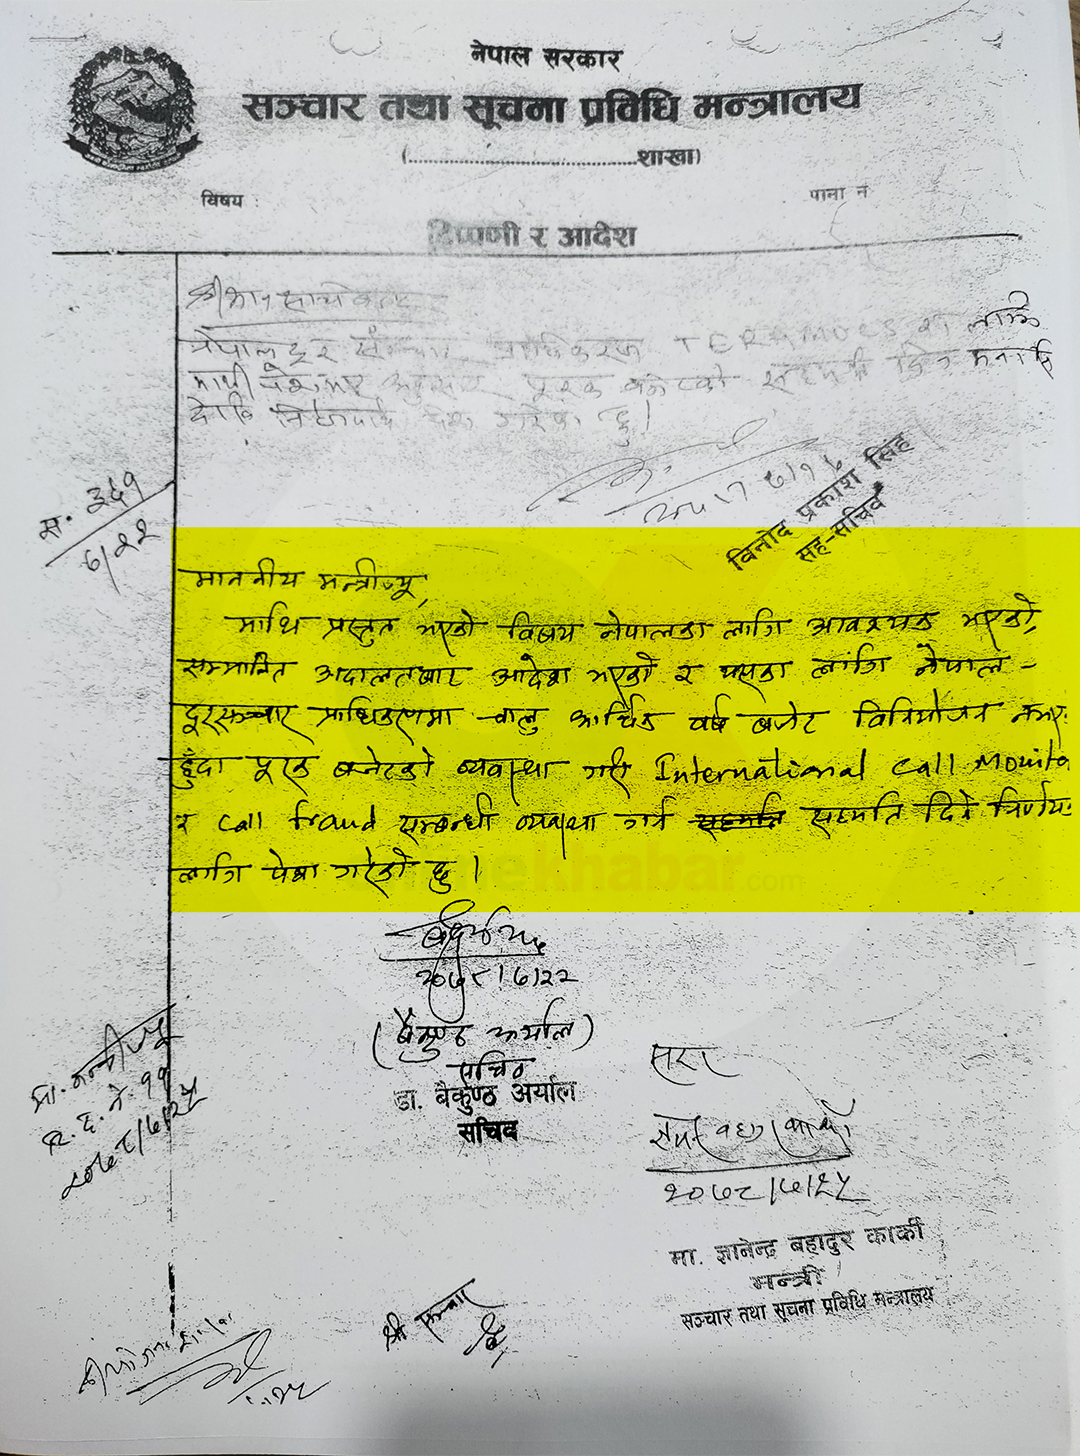 नेपाल सरकार
सञ्चार तथा सूचना प्रविधि मन्त्रालय
(................................शाखा)
विषय :
पाना नं
टिप्पणी र आदेश
नेपाल दूर संचार प्राधिकरण TERAMOCS का लागि
माथी पेश भए अनुसार पूरक बजेटको सहमती
पेश गरेको छु।
विनोद प्रकाश सिंह
सह-सचिव
स. ३६१
७/२२
माननीय मन्त्रीज्यू,
माथि प्रस्तुत भएको विषय नेपालका लागि आवश्यक भएको,
सम्मानित अदालतबाट आदेश भएको र यसका लागि नेपाल -
दूरसञ्चार प्राधिकरणमा चालु आर्थिक वर्ष बजेट विनियोजन नभए
हुँदा पूरक बजेटको व्यवस्था गरी International Call Monito
र Call fraud सम्बन्धी व्यवस्था गर्न सहमति सहमति दिने निर्णय
लागि पेश गरेको छु।
onlinekhabar.com
२०७८।७।२२
(बैकुण्ठ अर्याल)
सचिव
डा. बैकुण्ठ अर्याल
सचिव
मा. मन्त्रीज्यू
द. नं. ११
२०७८/७/२५
सदर
२०७८/७/२५
मा. ज्ञानेन्द्र बहादुर कार्की
मन्त्री
सञ्चार तथा सूचना प्रविधि मन्त्रालय
श्री सञ्चार